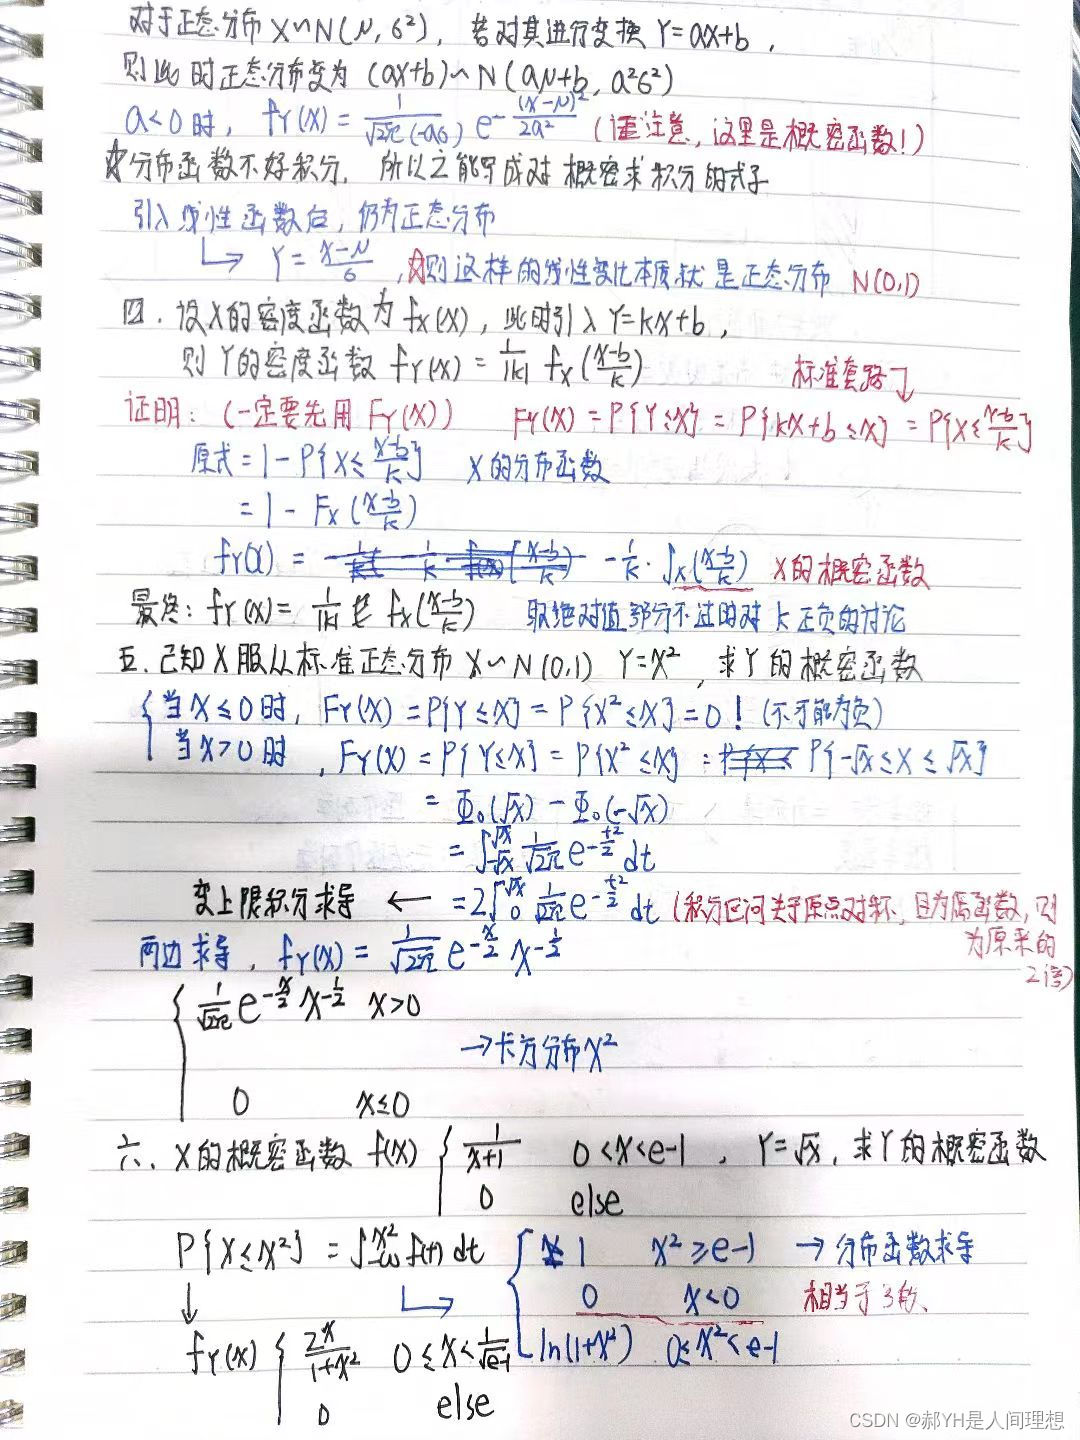 对于正态分布 X~N(μ, σ²), 若对其进行变换 Y=aX+b,
则此时正态分布变为 (aX+b)~N(aμ+b, a²σ²)
a<0时, fY(x) = 1/(√2π(-aσ)) e^-(x-μ)²/2a² (注意, 这里是概密函数!)
☆分布函数不好积分, 所以之能写成对概密求积分的式子
引入线性函数后, 仍为正态分布
↳ Y = (x-μ)/σ, 则这样的线性变化本质就是正态分布 N(0,1)
四. 设X的密度函数为fX(x), 此时引入Y=kX+b,
则Y的密度函数 fY(x) = 1/|k| fX((x-b)/k) 标准套路↓
证明: (一定要先用FY(X)) FY(X) = P{Y≤X} = P{kX+b≤X} = P{X≤(x-b)/k}
原式 = 1-P{X≤(x-b)/k} X的分布函数
= 1 - FX((x-b)/k)
fY(x) = -1/k · fX((x-b)/k) X的概密函数
最终: fY(x) = 1/|k| fX((x-b)/k) 取绝对值部分不过时对k正负的讨论
五. 已知X服从标准正态分布 X~N(0,1) Y=X², 求Y的概密函数
当X≤0时, FY(X) = P{Y≤X} = P{X²≤X} = 0! (不可能为负)
当X>0时, FY(X) = P{Y≤X} = P{X²≤X} = P{-√x≤X≤√x}
= Φ₀(√x) - Φ₀(-√x)
= ∫_{-√x}^{√x} 1/√2π e^{-t²/2} dt
变上限积分求导 ← = 2∫_0^{√x} 1/√2π e^{-t²/2} dt (积分区间关于原点对称, 且为偶函数, 则
为原来的
2倍)
两边求导, fY(X) = 1/√2π e^{-x/2} x^{-1/2}
1/√2π e^{-x/2} x^{-1/2} x>0
→卡方分布X²
0 x≤0
六、X的概密函数 f(X) { 1/(x+1) 0<x<e-1, Y=√x, 求Y的概密函数
0 else
P{X≤X²} = ∫_{-∞}^{x²} f(t) dt { 1 x²≥e-1 → 分布函数求导
↓ ↳ 0 x<0 相当于3段、
fY(x) { 2x/(1+x²) 0≤x<1/√e-1 ln(1+x²) 0≤x²<e-1
0 else
CSDN @郝YH是人间理想